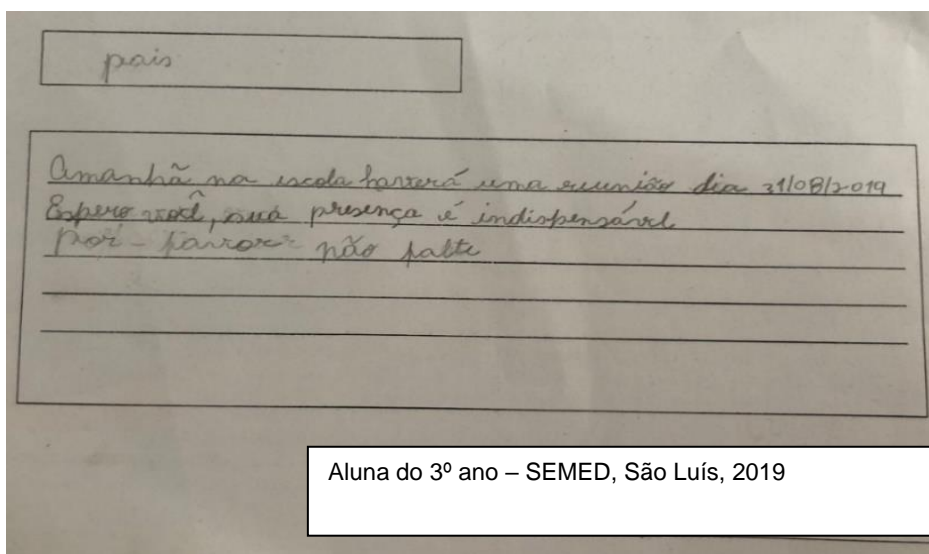 pais
Amanhã na escola haverá uma reunião dia 31/08/2019
Espero você, sua presença é indispensável
por-favor não falte
Aluna do 3º ano – SEMED, São Luís, 2019